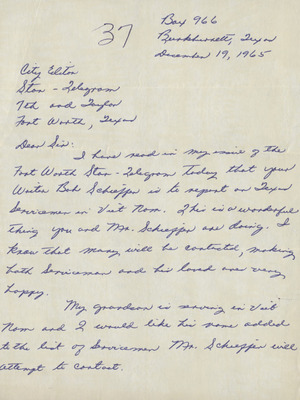 37
Box 966
Burkburnett, Texas
December 19, 1965
City Editor
Star-Telegram
7th and Taylor
Fort Worth, Texas
Dear Sir:
I have read in my issue of the
Fort Worth Star-Telegram today that your
Writer Bob Schieffer is to report on Texas
Servicemen in Viet Nam. This is a wonderful
thing you and Mr. Schieffer are doing. I
know that many will be contacted, making
both Serviceman and his loved ones very
happy.
My grandson is serving in Viet
Nam and I would like his name added
to the list of Servicemen Mr. Schieffer will
attempt to contact.